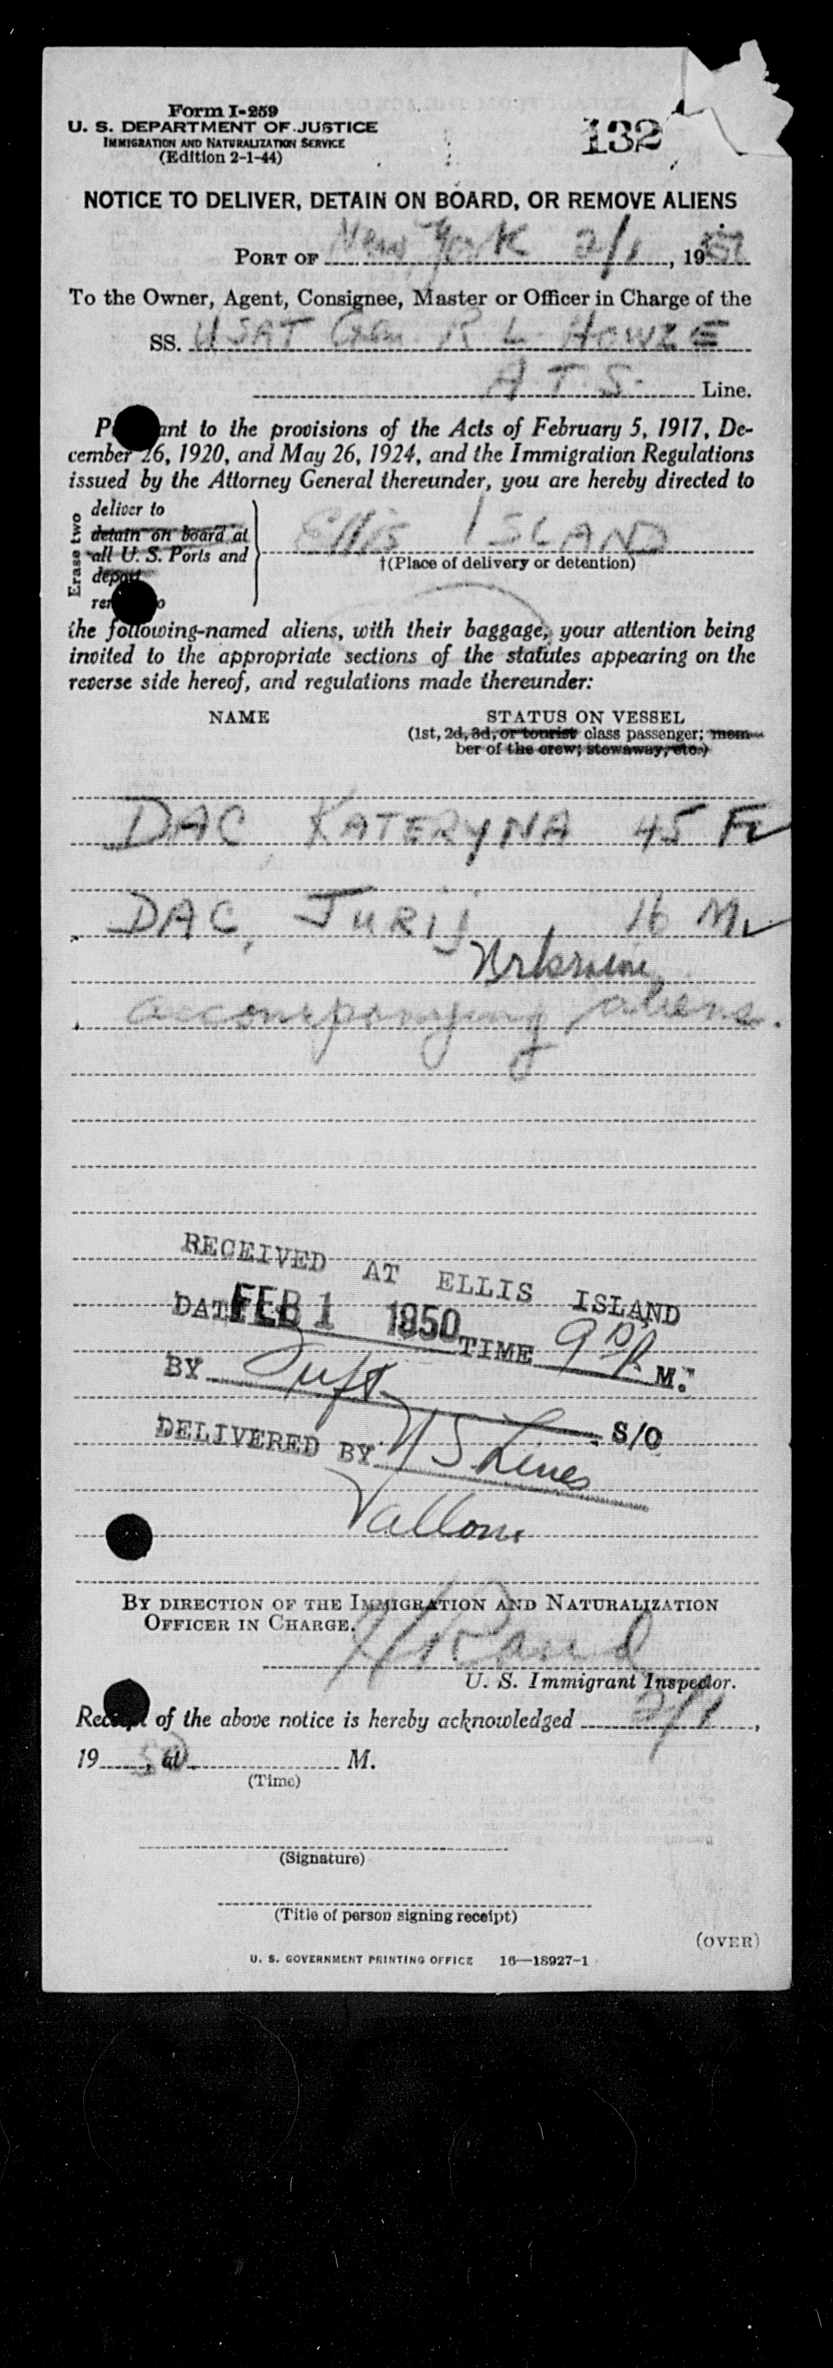 Form I-259
U. S. DEPARTMENT OF JUSTICE
IMMIGRATION AND NATURALIZATION SERVICE
(Edition 2-1-44)
132
NOTICE TO DELIVER, DETAIN ON BOARD, OR REMOVE ALIENS
PORT OF New York 2/1, 1950
To the Owner, Agent, Consignee, Master or Officer in Charge of the
SS. USAT Gen. R. L. HOWZE
A.T.S. Line.
P ant to the provisions of the Acts of February 5, 1917, De-
cember 26, 1920, and May 26, 1924, and the Immigration Regulations
issued by the Attorney General thereunder, you are hereby directed to
Erase two
deliver to
detain on board at
all U. S. Ports and
depart
Ellis ISLAND
†(Place of delivery or detention)
the following-named aliens, with their baggage, your attention being
invited to the appropriate sections of the statutes appearing on the
reverse side hereof, and regulations made thereunder:
NAME STATUS ON VESSEL
(1st, 2d, 3d, or tourist class passenger; mem-
ber of the crew; stowaway, etc.)
DAC KATERYNA 45 F✓
DAC, JURIJ 16 M✓
accompanying aliens.
RECEIVED AT ELLIS ISLAND
DATE FEB 1 1950 TIME 9 P M.
BY Tuft S/O
DELIVERED BY US Lines
BY DIRECTION OF THE IMMIGRATION AND NATURALIZATION
OFFICER IN CHARGE.
H Rand
U. S. Immigrant Inspector.
Receipt of the above notice is hereby acknowledged 2/1,
19 50, at M.
(Time)
(Signature)
(Title of person signing receipt)
(OVER)
U. S. GOVERNMENT PRINTING OFFICE 16—18927-1